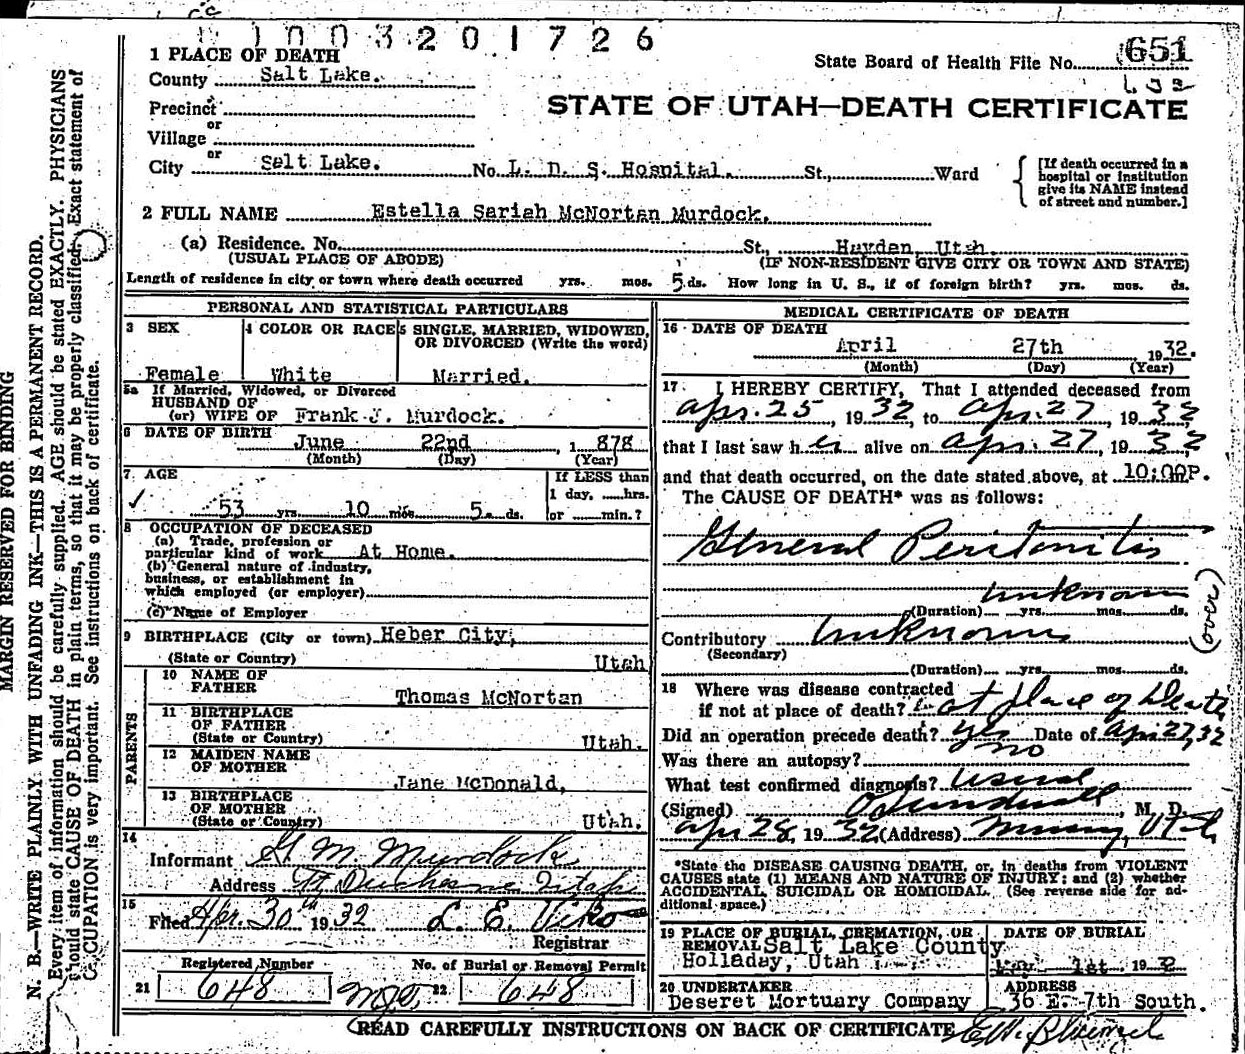 1003201726
1 PLACE OF DEATH
State Board of Health File No. 651
County Salt Lake.
STATE OF UTAH—DEATH CERTIFICATE
Precinct
or
Village
or
City Salt Lake. No. L. D. S. Hospital. St., Ward
[If death occurred in a hospital or institution give its NAME instead of street and number.]
2 FULL NAME Estella Sariah McNortan Murdock.
(a) Residence. No. St., Hayden, Utah
(USUAL PLACE OF ABODE) (IF NON-RESIDENT GIVE CITY OR TOWN AND STATE)
Length of residence in city or town where death occurred yrs. mos. 5 ds. How long in U. S., if of foreign birth? yrs. mos. ds.
PERSONAL AND STATISTICAL PARTICULARS
3 SEX 4 COLOR OR RACE 5 SINGLE, MARRIED, WIDOWED, OR DIVORCED (Write the word)
Female White Married.
5a If Married, Widowed, or Divorced
HUSBAND OF
(or) WIFE OF Frank J. Murdock.
6 DATE OF BIRTH June 22nd, 1878
(Month) (Day) (Year)
7 AGE If LESS than
1 day, hrs.
53 yrs. 10 mos. 5 ds. or min.?
8 OCCUPATION OF DECEASED
(a) Trade, profession or
particular kind of work At Home.
(b) General nature of industry,
business, or establishment in
which employed (or employer)
(c) Name of Employer
9 BIRTHPLACE (City or town) Heber City,
(State or Country) Utah
PARENTS
10 NAME OF
FATHER Thomas McNortan
11 BIRTHPLACE
OF FATHER
(State or Country) Utah.
12 MAIDEN NAME
OF MOTHER
Jane McDonald,
13 BIRTHPLACE
OF MOTHER
(State or Country) Utah.
14
Informant M. Murdock
Address Ft Duchesne Utah
15
Filed Apr. 30th 1932 L. E. Viko
Registrar
Registered Number No. of Burial or Removal Permit
21 648 22 648
MEDICAL CERTIFICATE OF DEATH
16 DATE OF DEATH
April 27th 1932.
(Month) (Day) (Year)
17 I HEREBY CERTIFY, That I attended deceased from
Apr. 25, 1932 to Apr. 27, 1932,
that I last saw her alive on Apr. 27, 1932
and that death occurred, on the date stated above, at 10:00P.m.
The CAUSE OF DEATH* was as follows:
General Peritonitis
unknown
(Duration) yrs. mos. ds.
(over)
Contributory Unknown
(Secondary)
(Duration) yrs. mos. ds.
18 Where was disease contracted
if not at place of death? at place of Death
Did an operation precede death? Yes Date of Apr. 27, 32
Was there an autopsy? no
What test confirmed diagnosis? usual
(Signed) M. D.
Apr 28, 1932 (Address) Murray, Utah
*State the DISEASE CAUSING DEATH, or, in deaths from VIOLENT
CAUSES state (1) MEANS AND NATURE OF INJURY; and (2) whether
ACCIDENTAL, SUICIDAL OR HOMICIDAL. (See reverse side for ad-
ditional space.)
19 PLACE OF BURIAL, CREMATION, OR
REMOVAL Salt Lake County
Holladay, Utah
DATE OF BURIAL
May 1st 1932
20 UNDERTAKER
Deseret Mortuary Company
ADDRESS
36 E. 7th South.
READ CAREFULLY INSTRUCTIONS ON BACK OF CERTIFICATE
MARGIN RESERVED FOR BINDING
N. B.—WRITE PLAINLY, WITH UNFADING INK—THIS IS A PERMANENT RECORD.
Every item of information should be carefully supplied. AGE should be stated EXACTLY. PHYSICIANS
should state CAUSE OF DEATH in plain terms, so that it may be properly classified. Exact statement of
OCCUPATION is very important. See instructions on back of certificate.